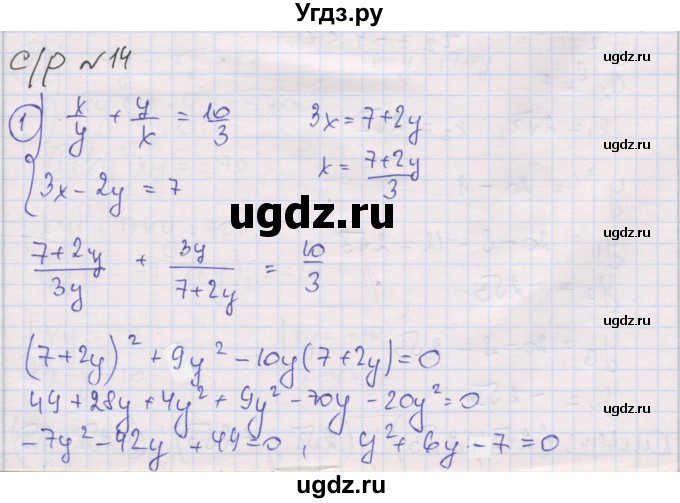 Угдз.ру
с/р № 14
ugdz.ru
1) { x/y + y/x = 10/3    3x = 7+2y
3x - 2y = 7    x = (7+2y)/3
ugdz.ru
ugdz.ru
ugdz.ru
(7+2y)/3y + 3y/(7+2y) = 10/3
ugdz.ru
ugdz.ru
(7+2y)² + 9y² - 10y(7+2y) = 0
ugdz.ru
49 + 28y + 4y² + 9y² - 70y - 20y² = 0
-7y² - 42y + 49 = 0 , y² + 6y - 7 = 0
ugdz.ru
ugdz.ru